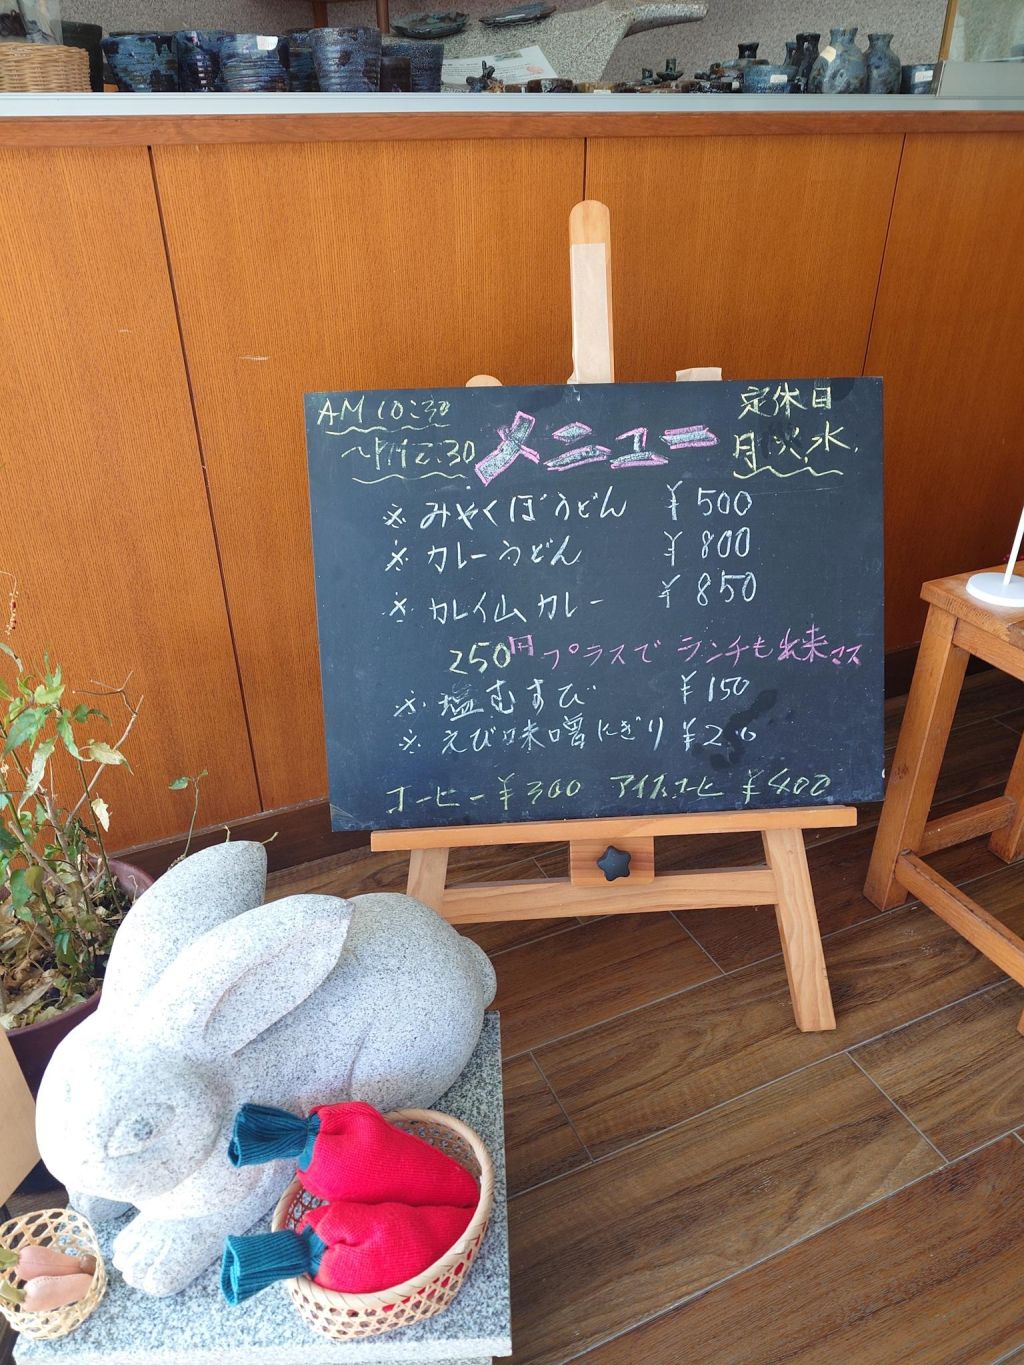 AM 10:30
~PM2:30
メニュー
定休日
月,火,水,
※ みやくぼうどん ¥500
※ カレーうどん ¥800
※ カレイ山カレー ¥850
250円プラスで ランチも出来マス
※ 塩むすび ¥150
※ えび味噌にぎり
コーヒー ¥300 アイスコーヒ ¥400